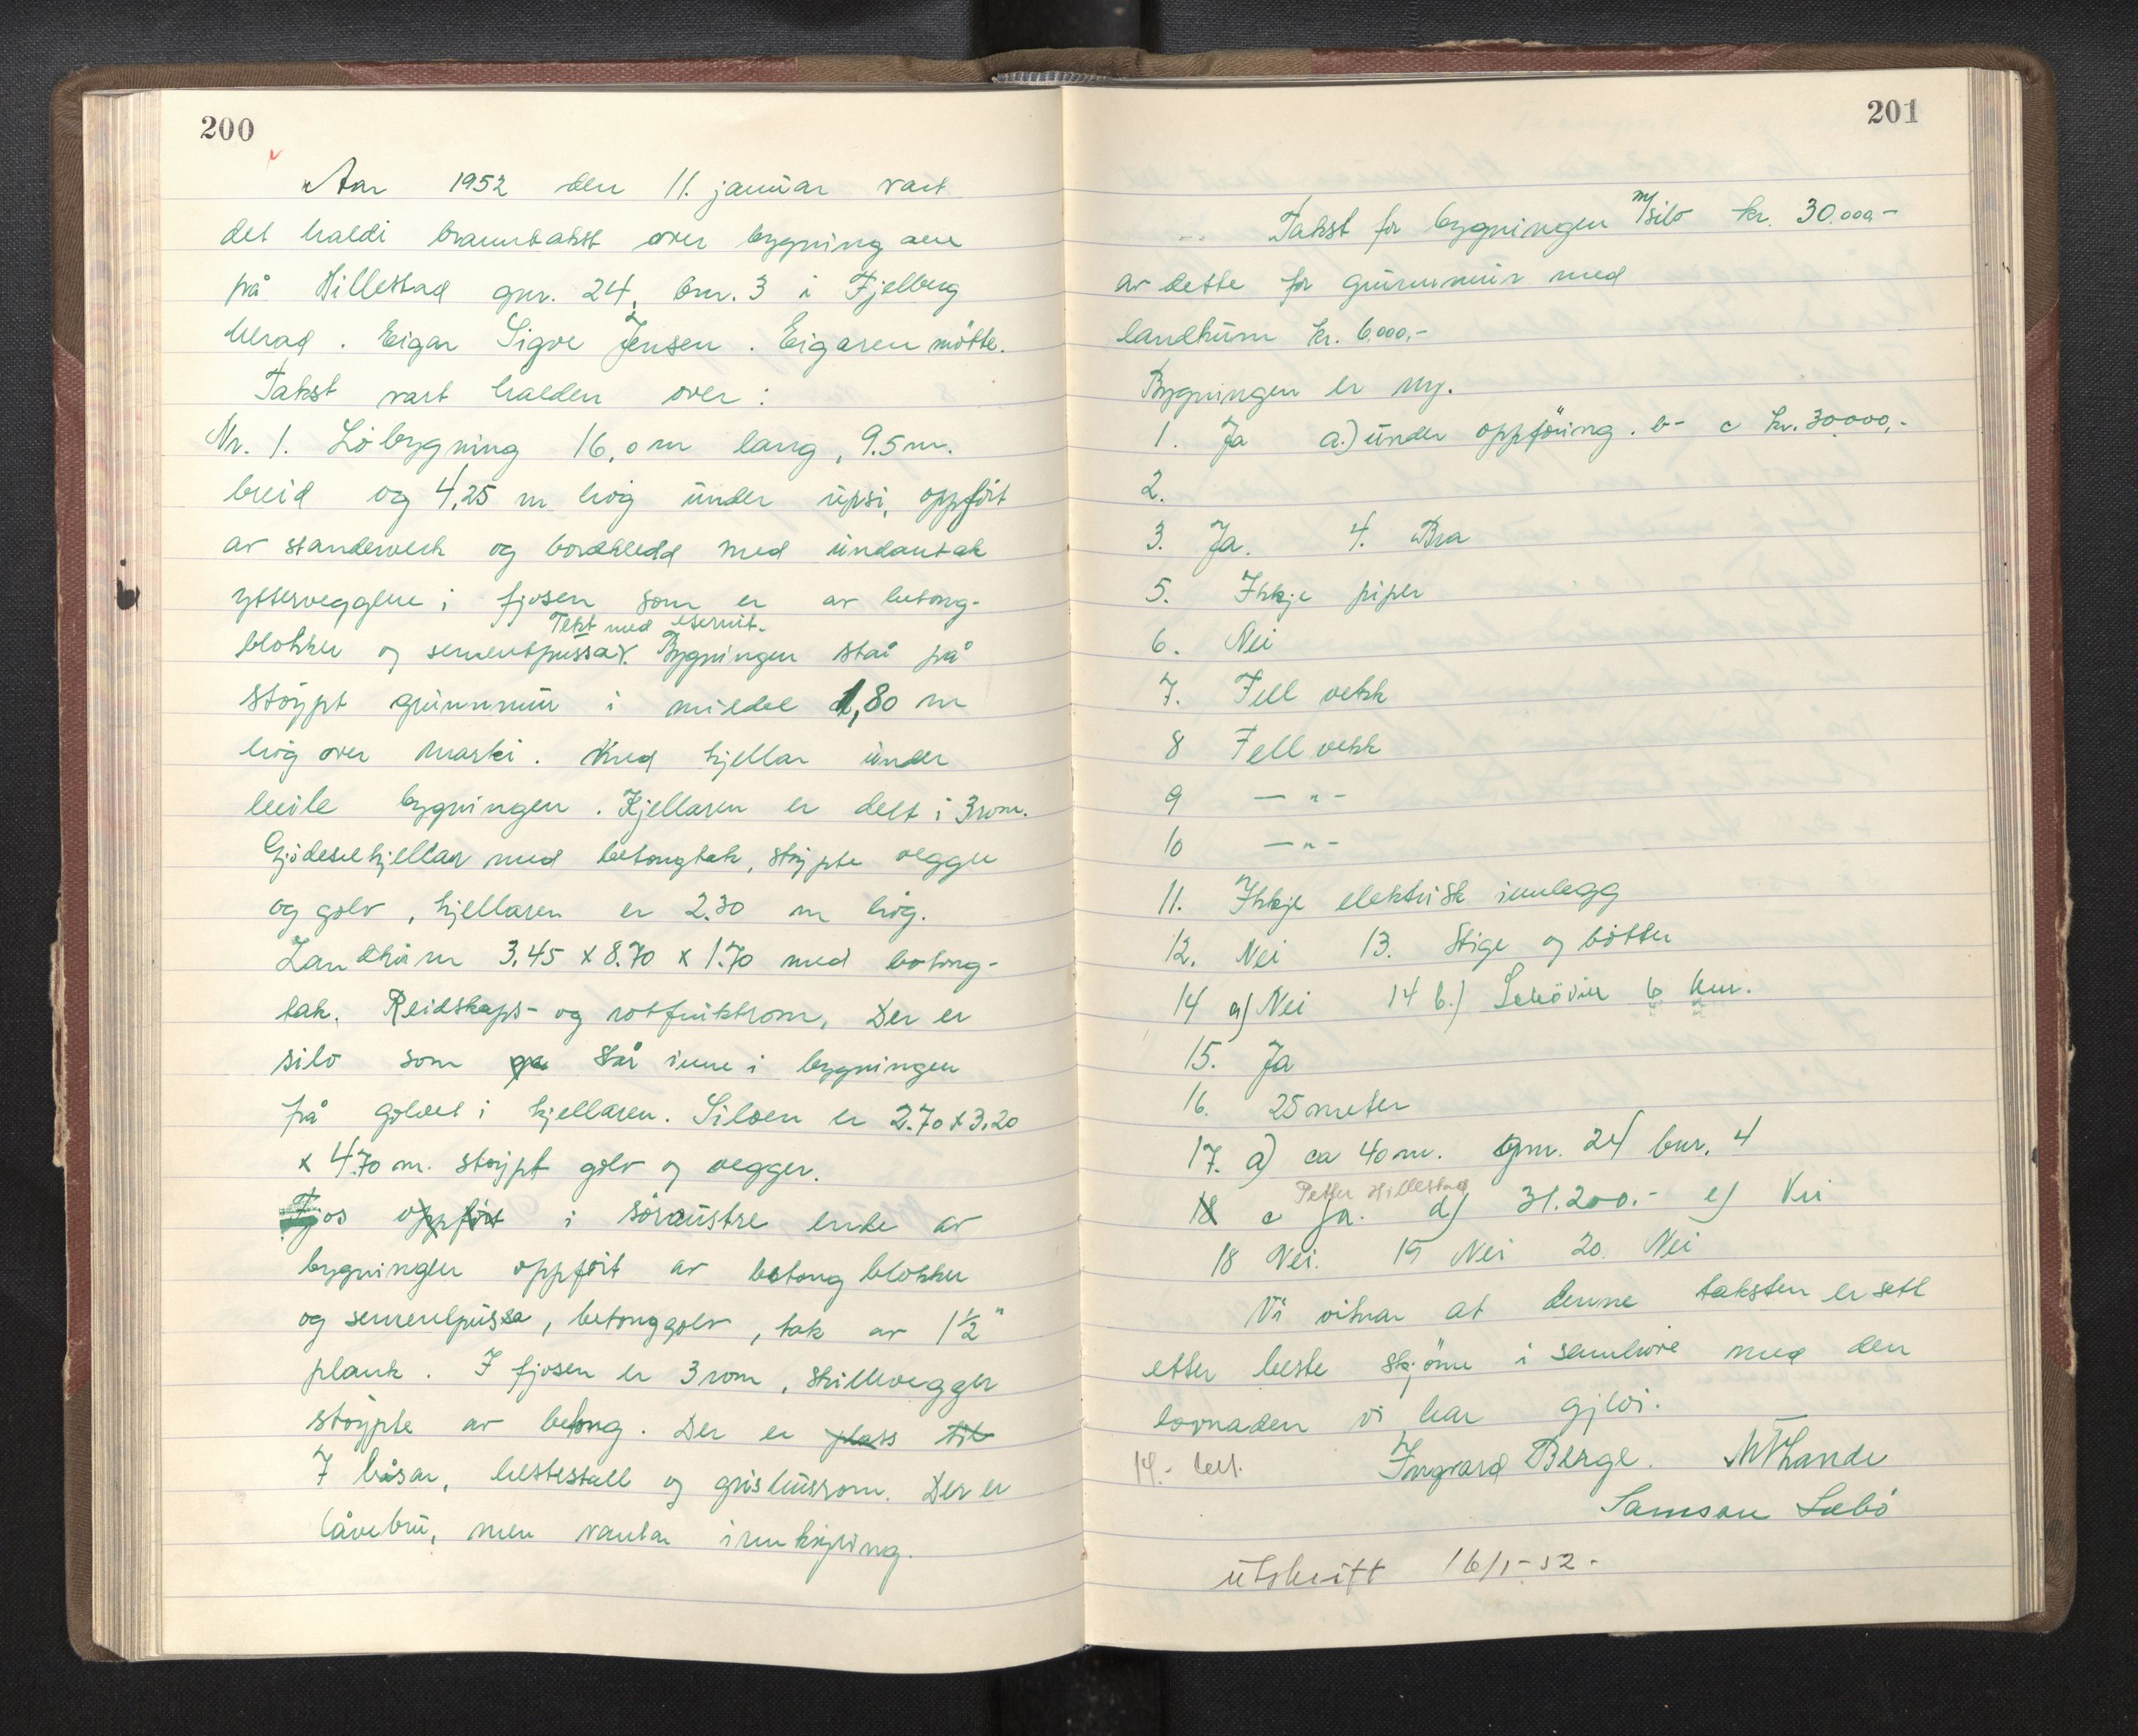 200
Aar 1952 den 11. januar vart
det haldi branntakst over bygning ane
på Hillestad gnr. 24, bnr. 3 i Fjelberg
herad. Eigar Sigve Jensen. Eigaren mötte.
Takst vart halden over:
Nr. 1. Löbygning 16,0 m lang, 9.5 m.
breid og 4,25 m hög under upsi, oppfört
av standerverk og bordkledd med undantak
ytterveggene i fjosen som er av betong-
Tekt med eternit.
blokker og sementpussa. Bygningen står på
stöypt grunnmur i middel 1,80 m
hög over marki. Med kjellar under
heile bygningen. Kjellaren er delt i 3 rom.
Gjödselkjellar med betongtak, stöypte vegger
og golv, kjellaren er 2.30 m hög.
Landkum 3,45 x 8.70 x 1.70 med betong-
tak. Reidskaps- og rotfruktrom, Der er
silo som står inne i bygningen
på golvet i kjellaren. Siloen er 2.70 x 3,20
x 4.70 m. stöypt golv og vegger.
Fjos oppfört i söraustre ende av
bygningen oppfört av betong blokker
og sementpussa, betonggolv, tak av 1½"
plank. I fjosen er 3 rom, skillevegger
stöypte av betong. Der er plass til
7 båsar, hestestall og grishusrom. Der er
låvebru, men vantar innkjöring.
201
Takst for bygningen m/silo kr. 30.000-
av dette for grunnmur med
landkum kr. 6000,-
Bygningen er ny.
1. Ja a.) under oppföring. b- c kr. 30000,-
2.
3. Ja. 4. Bra
5. Ikkje piper
6. Nei
7. Fell vekk
8 Fell vekk
9 — " -
10 — " -
11. Ikkje elektrisk innlegg
12. Nei 13. Stige og bötter
14 a) Nei 14 b.) 6 km.
15. Ja
16. 25 meter
17. a) ca 40 m. gnr. 24 bnr. 4
Petter Hillestad
18 c Ja. d) 31.200.- e) Nei
18 Nei. 19 Nei 20. Nei
Vi vitnar at denne taksten er sett
etter beste skjönn i samhöve med den
lovnaden vi har gjevi.
14.- bet. Ingvard Berge.
Samson Sæbö
utskrift 16/1-52-